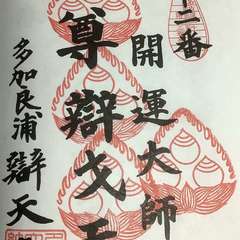 十二番
開運大師
尊辯戈天
多加良浦辯天